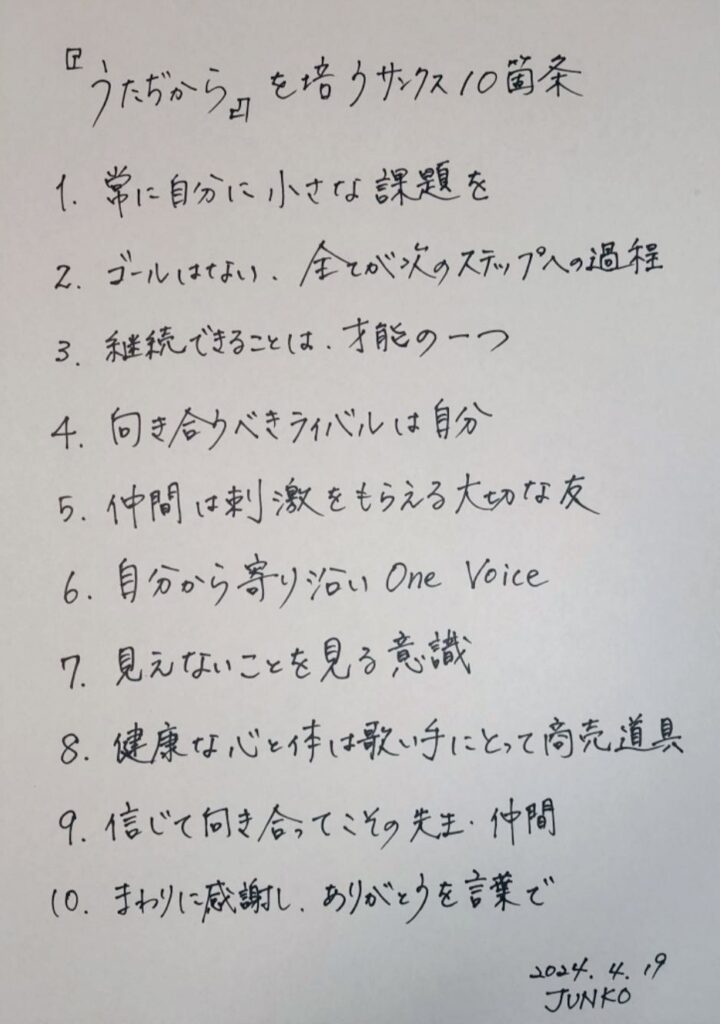 『うたぢから』を培うサンクス10箇条
1. 常に自分に小さな課題を
2. ゴールはない、全てが次のステップへの過程
3. 継続できることは、才能の一つ
4. 向き合うべきライバルは自分
5. 仲間は刺激をもらえる大切な友
6. 自分から寄り沿い One Voice
7. 見えないことを見る意識
8. 健康な心と体は歌い手にとって商売道具
9. 信じて向き合ってこその先生・仲間
10. まわりに感謝し、ありがとうを言葉で
2024. 4. 19
JUNKO